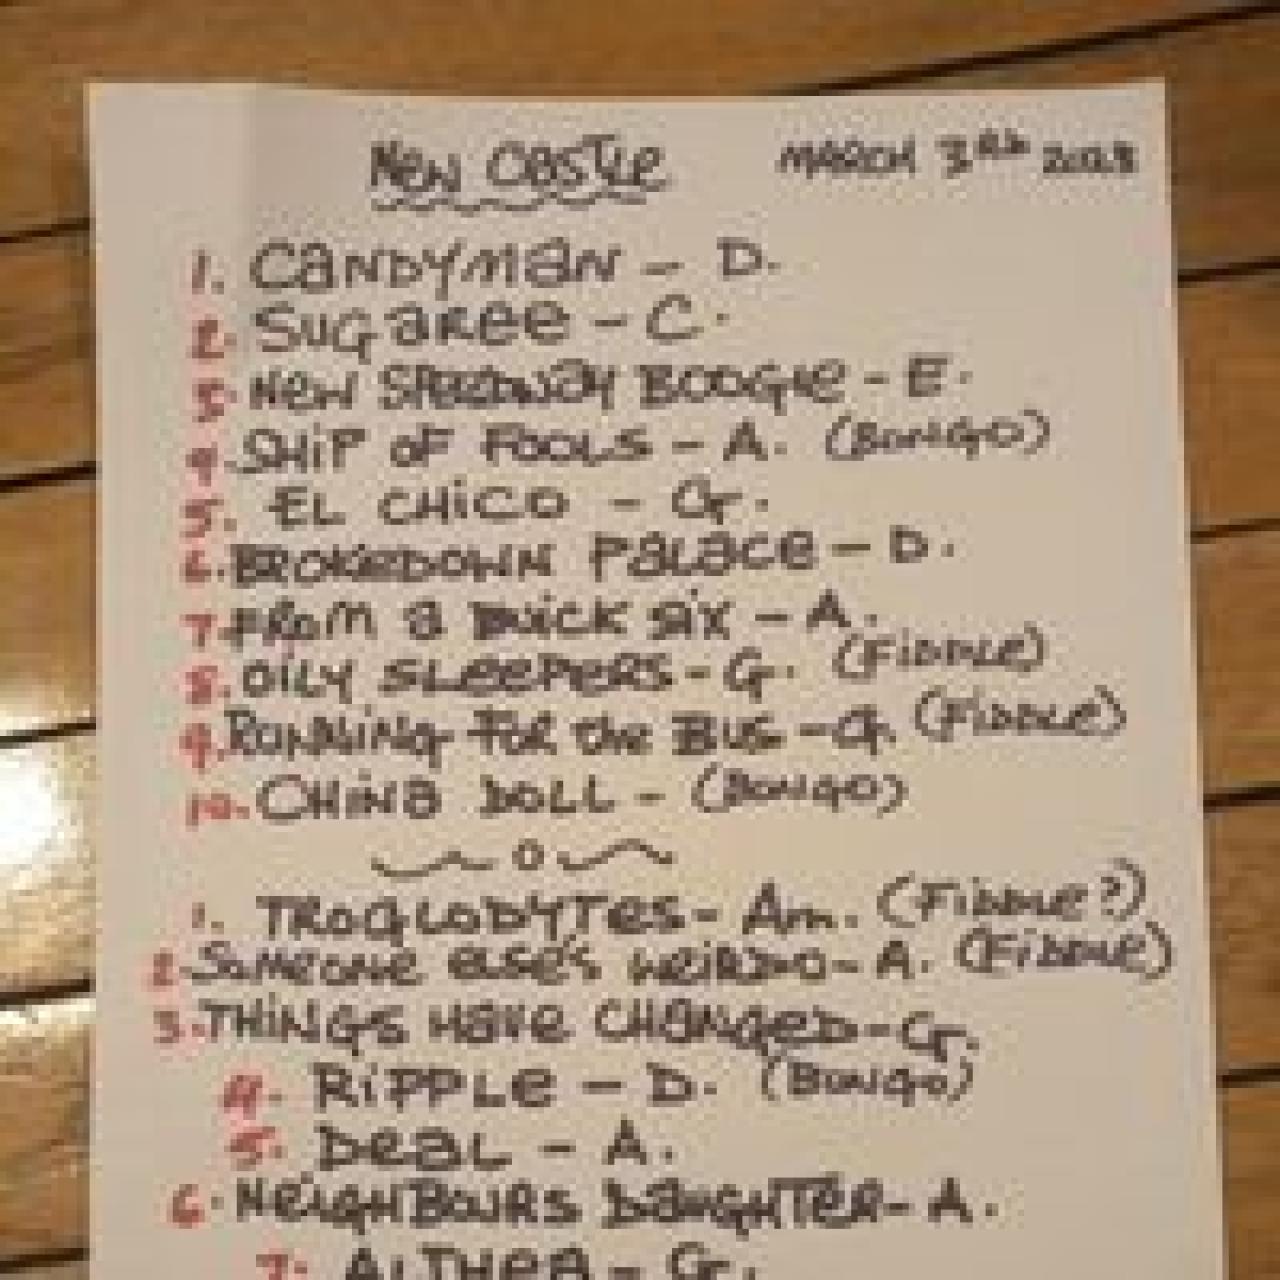 New Castle MARCH 3RD 2023
1. CANDYMAN - D.
2. SUGAREE - C.
3. NEW SPEEDWAY BOOGIE - E.
4. SHIP OF FOOLS - A. (BONGO)
5. EL CHICO - G.
6. BROKEDOWN PALACE - D.
7. FROM A BUICK SIX - A.
8. OILY SLEEPERS - G. (FIDDLE)
9. RUNNING FOR the BUS - G. (FIDDLE)
10. CHINA DOLL - (BONGO)
1. TROGLODYTES - Am. (FIDDLE?)
2. SOMEONE ELSE'S WEIRDO - A. (FIDDLE)
3. THINGS HAVE CHANGED - G.
4. RIPPLE - D. (BONGO)
5. DEAL - A.
6. NEIGHBOURS DAUGHTER - A.
7. ALTHEA - G.